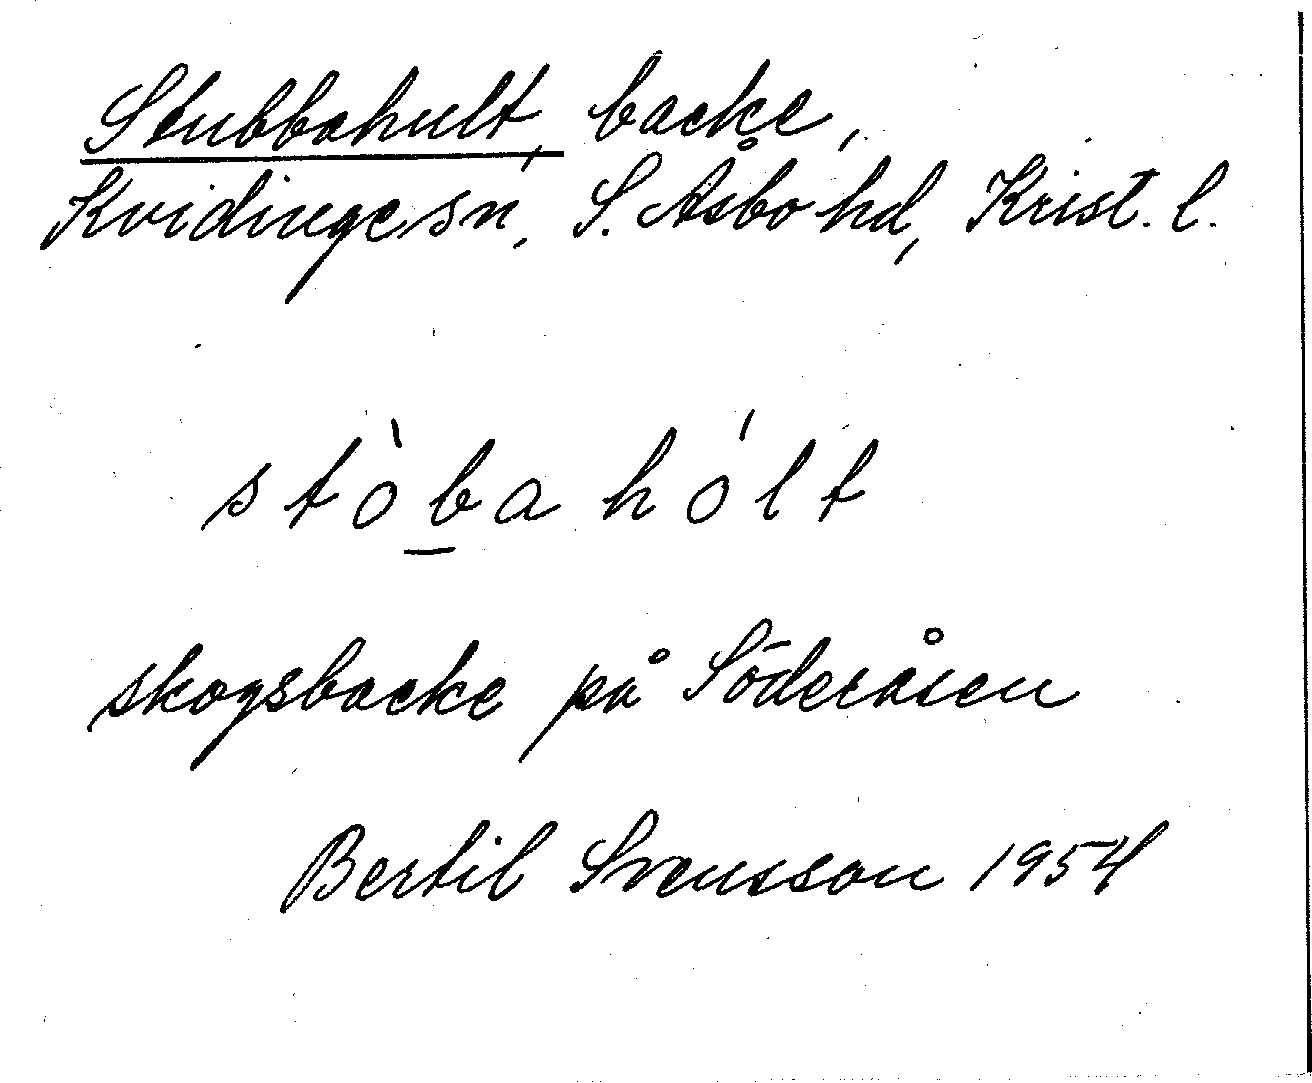 Stubbahult, backe,
Kvidinge sn, S. Åsbo hd, Krist. l.
stò̱bahólt
skogsbacke på Söderåsen
Bertil Svensson 1954